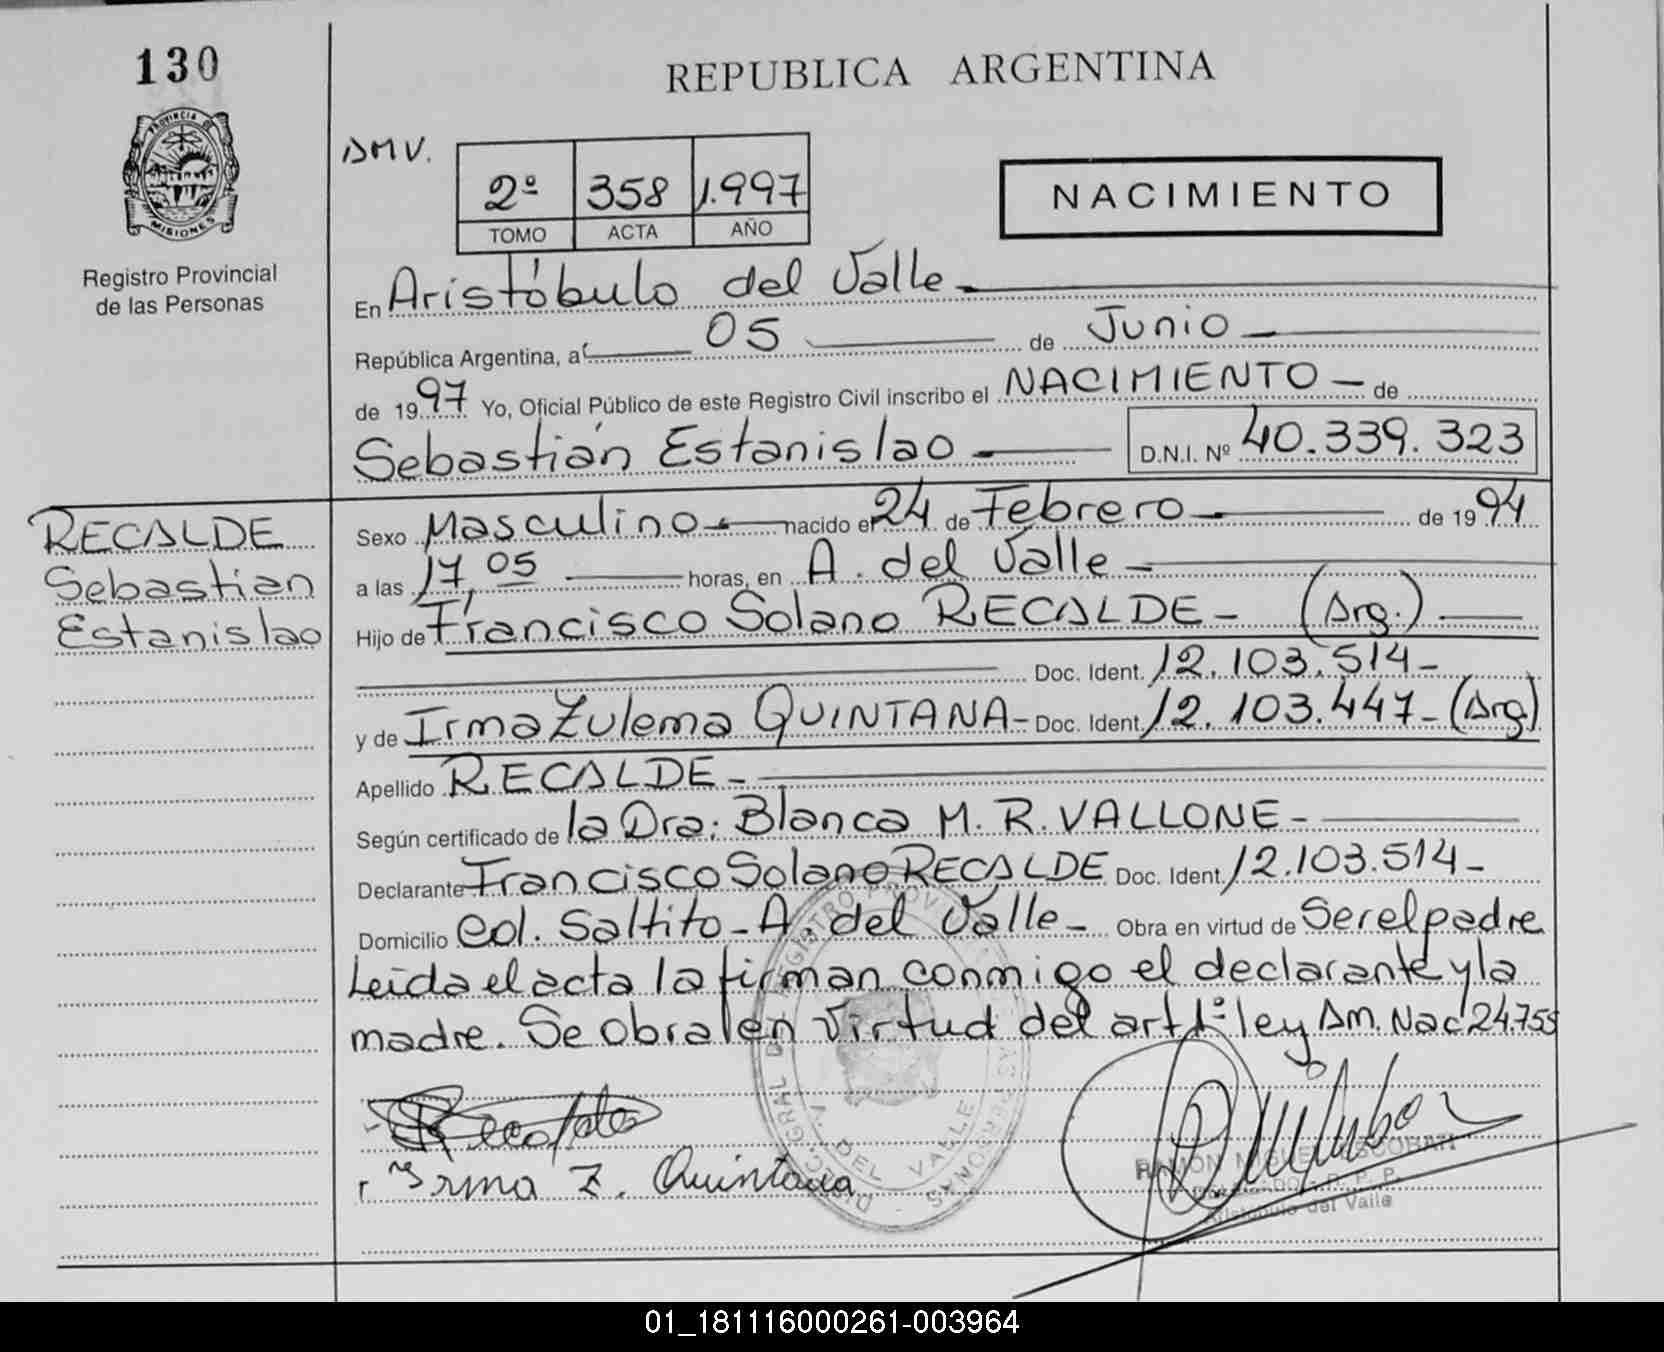 130
REPUBLICA ARGENTINA
PROVINCIA DE
MISIONES
Registro Provincial
de las Personas
AMV.
2º 358 1.997
TOMO ACTA AÑO
NACIMIENTO
En Aristóbulo del Valle
República Argentina, a 05 de Junio
de 1997 Yo, Oficial Público de este Registro Civil inscribo el NACIMIENTO de
Sebastián Estanislao D.N.I. Nº 40.339.323
RECALDE
Sebastian
Estanislao
Sexo Masculino nacido el 24 de Febrero de 1994
a las 17,05 horas, en A. del Valle
Hijo de Francisco Solano RECALDE (Arg.)
Doc. Ident. 12.103.514
y de Irma Zulema QUINTANA Doc. Ident. 12.103.447 (Arg)
Apellido RECALDE
Según certificado de la Dra. Blanca M. R. VALLONE
Declarante Francisco Solano RECALDE Doc. Ident. 12.103.514
Domicilio Col. Saltito - A. del Valle Obra en virtud de Ser el padre
Leída el acta la firman conmigo el declarante y la
madre. Se obra en virtud del art 1º ley Am. Nac 24.755
Recalde
Irma Z. Quintana
A. DEL VALLE
RAMÓN MIGUEL ESCOBAR
Aristóbulo del Valle
01_181116000261-003964